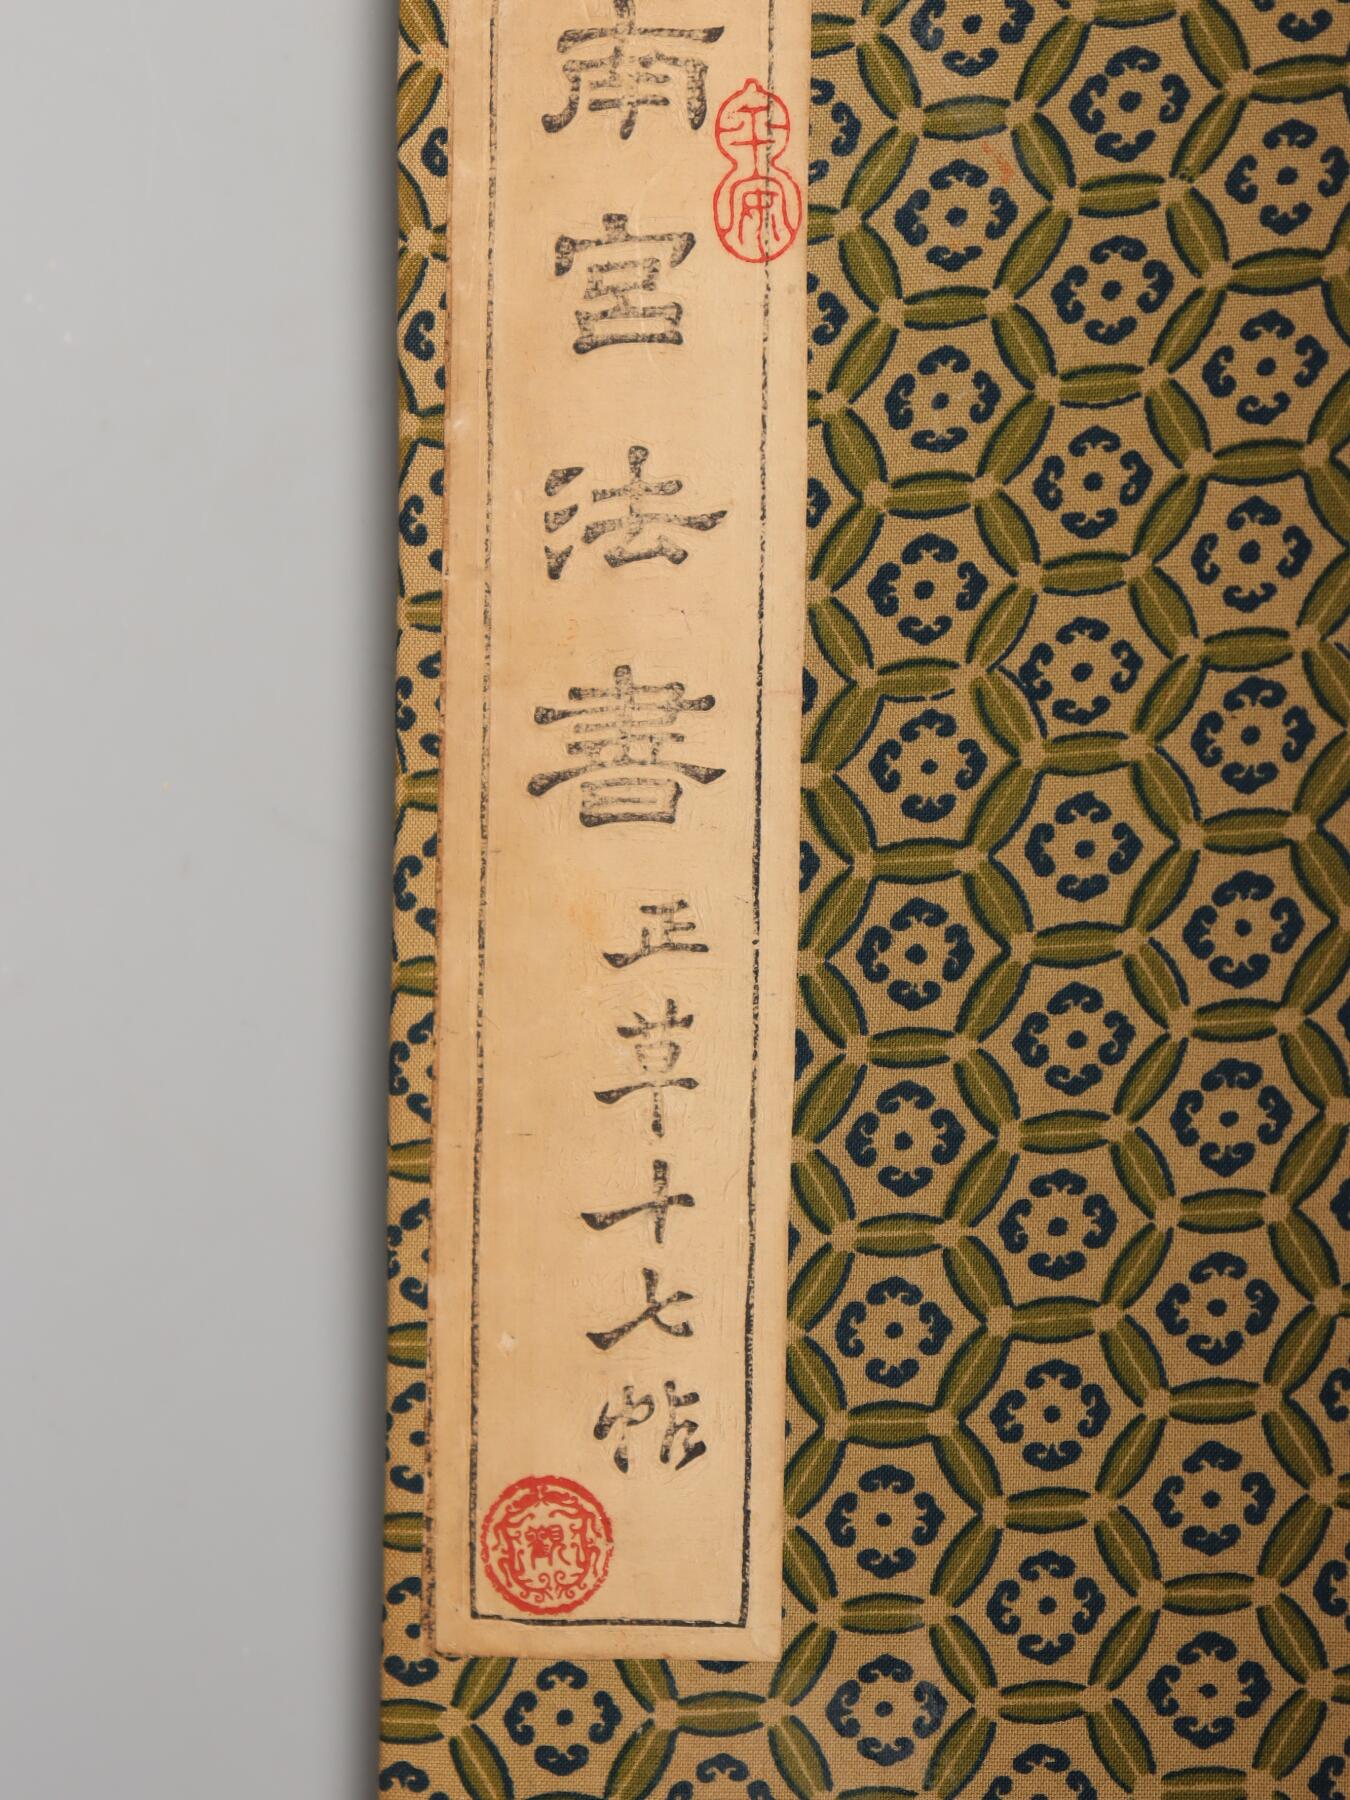 南宮法書
正草十七帖
觀